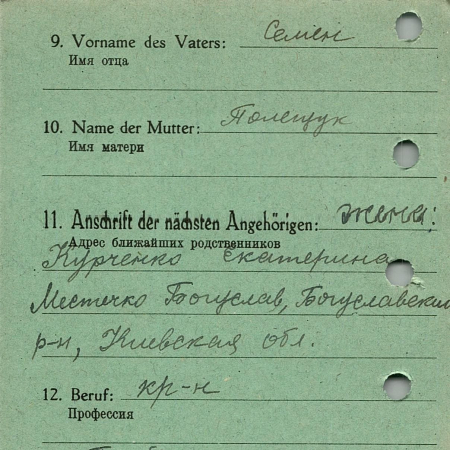 9. Vorname des Vaters: Семен
Имя отца
10. Name der Mutter: Полещук
Имя матери
11. Anschrift der nächsten Angehörigen: жена:
Адрес ближайших родственников
Курченко Екатерина
Местечко Богуслав, Богуславский
р-н, Киевская обл.
12. Beruf: кр-н
Профессия